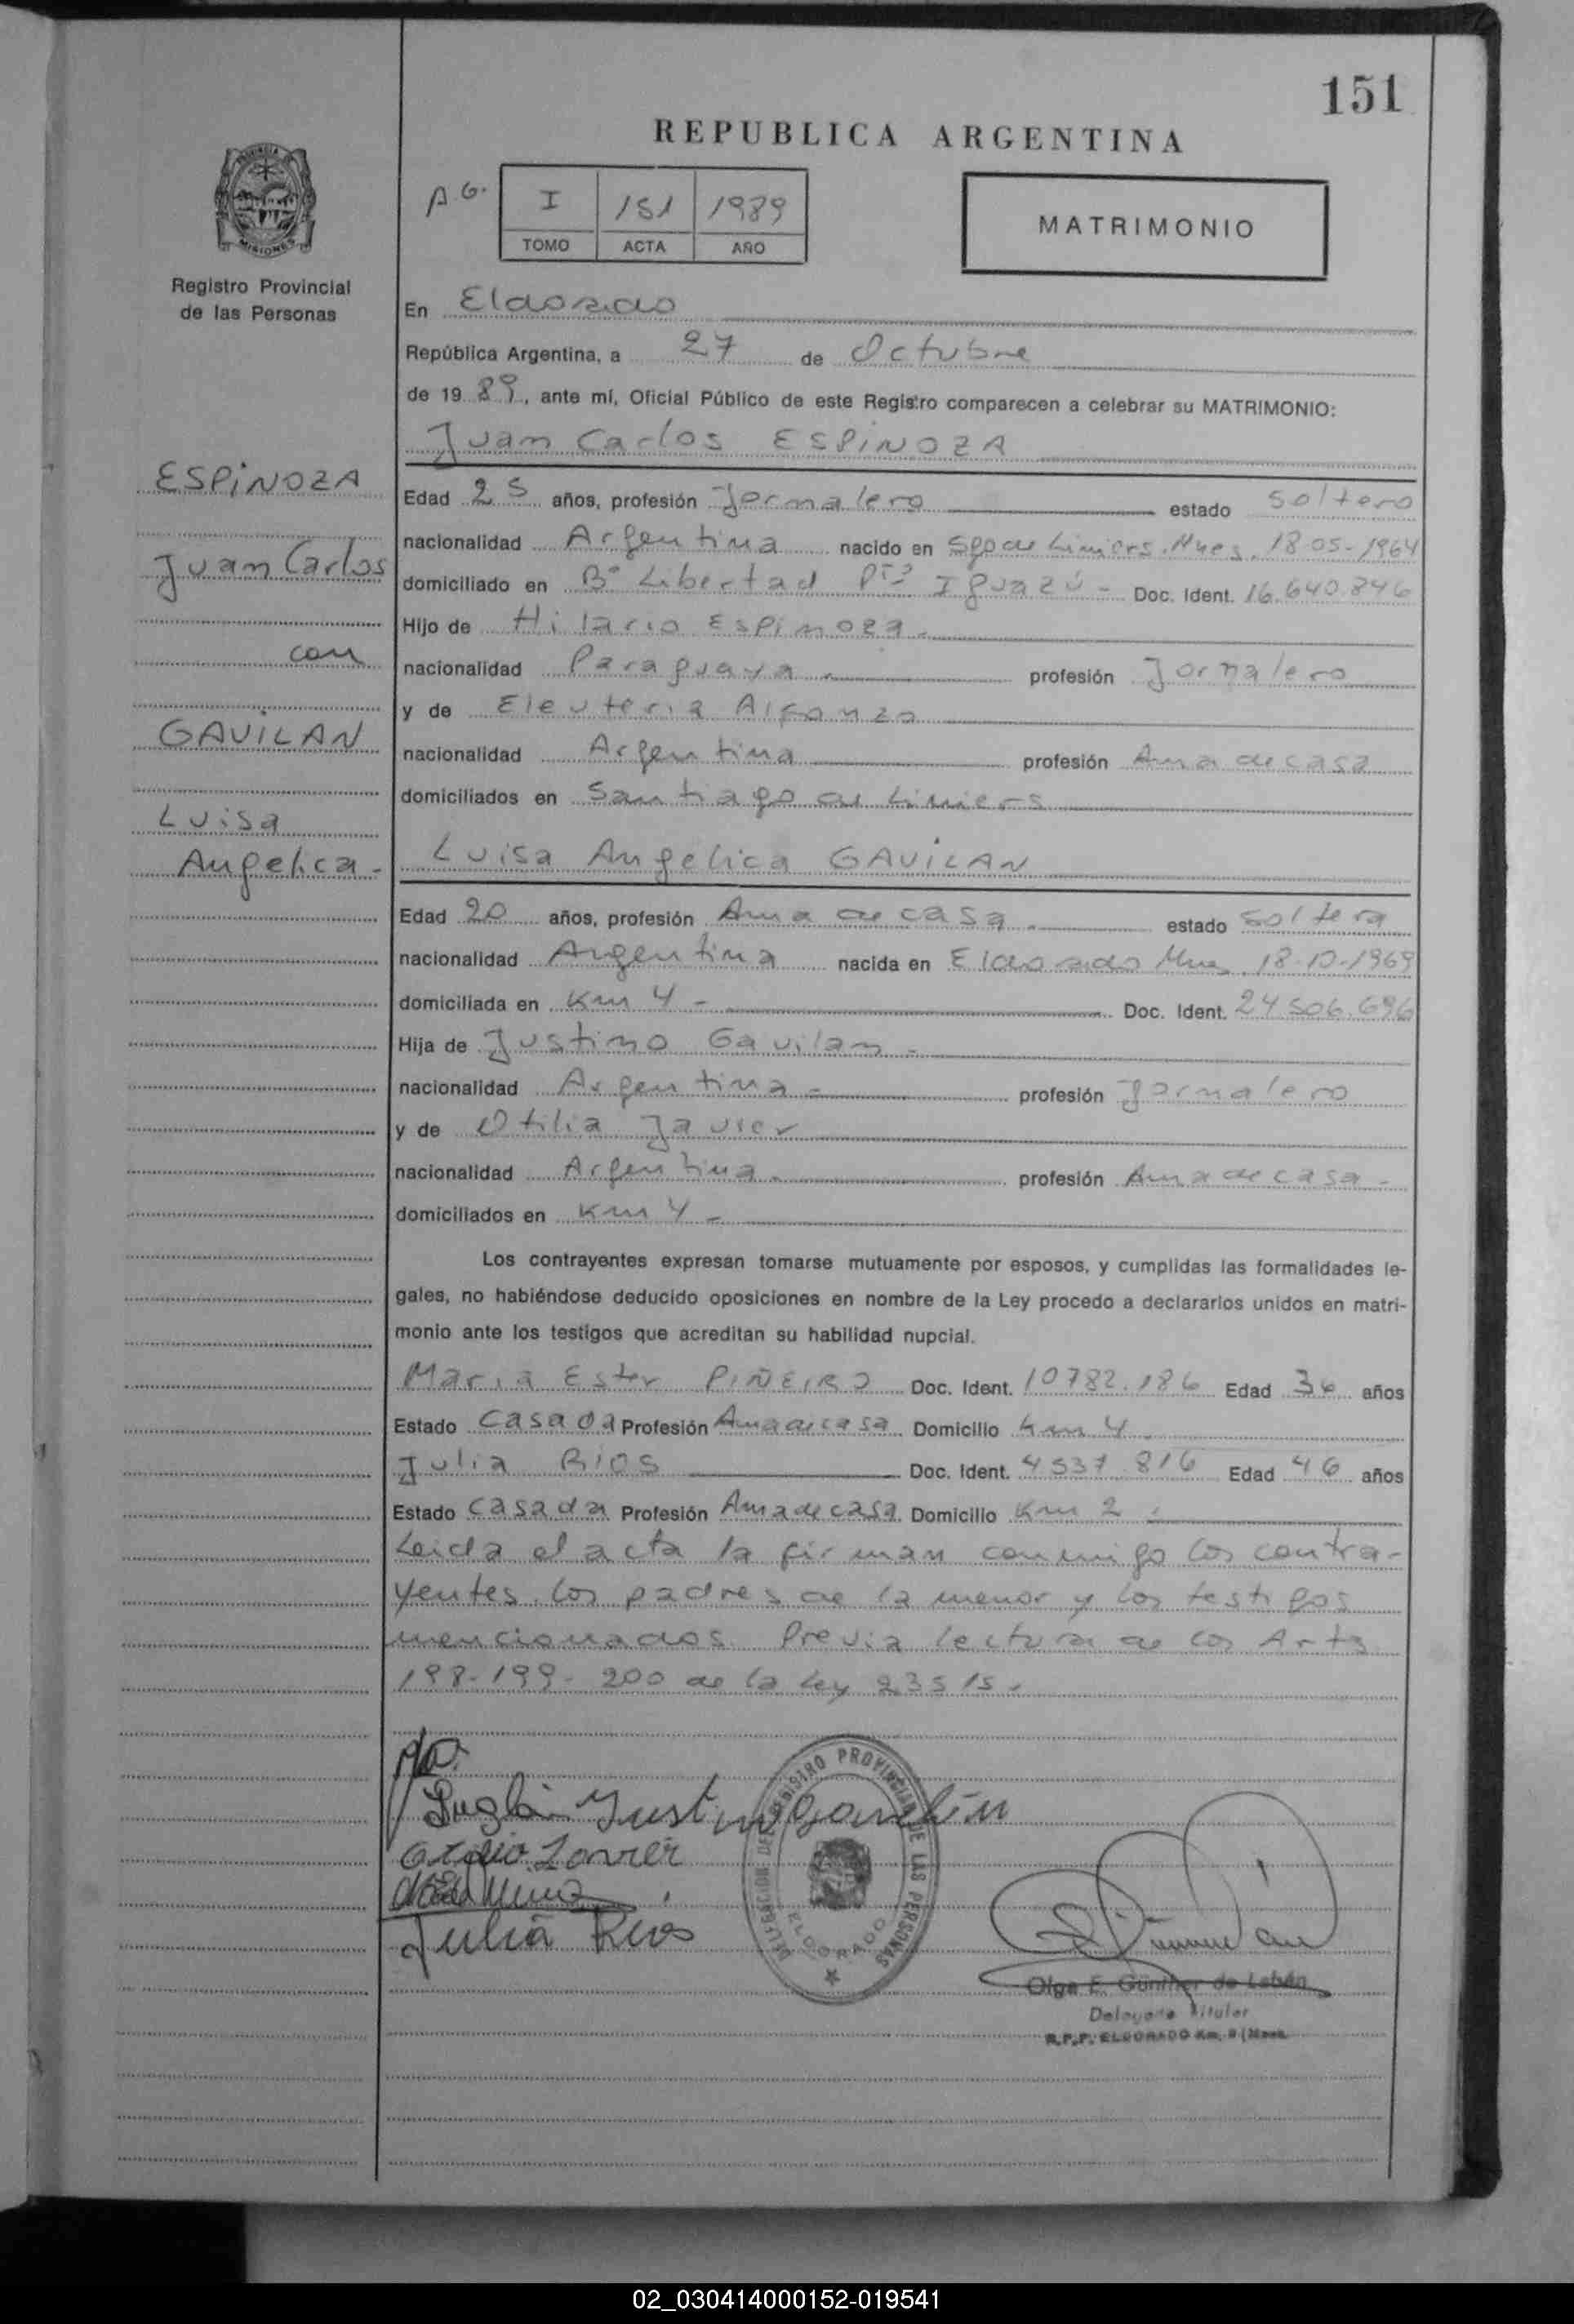 151
REPUBLICA ARGENTINA
A.G.
I 151 1989
TOMO ACTA AÑO
MATRIMONIO
PROVINCIA
MISIONES
Registro Provincial
de las Personas
ESPINOZA
Juan Carlos
con
GAVILAN
Luisa
Angelica -
En Eldorado
República Argentina, a 27 de Octubre
de 19 89, ante mí, Oficial Público de este Registro comparecen a celebrar su MATRIMONIO:
Juan Carlos ESPINOZA
Edad 25 años, profesión Jornalero estado soltero
nacionalidad Argentina nacido en Sgo de Liniers. Mnes. 18-05-1964
domiciliado en Bº Libertad Pto Iguazú - Doc. Ident. 16.640.846
Hijo de Hilario Espinoza.
nacionalidad Paraguaya. profesión Jornalero
y de Eleuteria Alfonzo
nacionalidad Argentina profesión Ama de casa
domiciliados en Santiago de Liniers
Luisa Angelica GAVILAN
Edad 20 años, profesión Ama de casa. estado soltera
nacionalidad Argentina nacida en Eldorado Mnes 18-10-1969
domiciliada en Km 4 - Doc. Ident. 24.506.696
Hija de Justino Gavilan -
nacionalidad Argentina - profesión Jornalero
y de Otilia Javier
nacionalidad Argentina. profesión Ama de casa -
domiciliados en Km 4 -
Los contrayentes expresan tomarse mutuamente por esposos, y cumplidas las formalidades le-
gales, no habiéndose deducido oposiciones en nombre de la Ley procedo a declararlos unidos en matri-
monio ante los testigos que acreditan su habilidad nupcial.
Maria Ester PIÑEIRO Doc. Ident. 10782.186 Edad 36 años
Estado casada Profesión Ama de casa Domicilio Km 4.
Julia Rios Doc. Ident. 4537.816 Edad 46 años
Estado casada Profesión Ama de casa. Domicilio Km 2.
Leida el acta la firman conmigo los contra-
yentes, los padres de la menor y los testigos
mencionados. Previa lectura de los Arts
198-199-200 de la Ley 23515.
Justino Gavilan
Julia Rios
DELEGACION DEL REGISTRO PROVINCIAL DE LAS PERSONAS
ELDORADO
Olga E. Günther de Lebán
Delegada Titular
R.P.P. ELDORADO Km. 9 (Mnes.
02_030414000152-019541